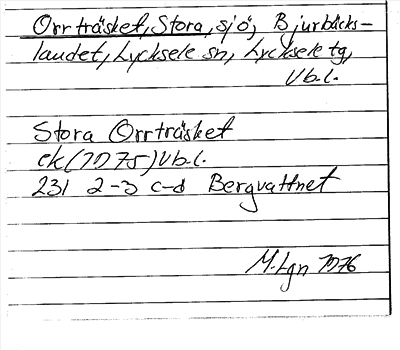 Orrträsket, Stora, sjö, Bjurbäcks-
landet, Lycksele sn, Lycksele tg,
Vb.l.
Stora Orrträsket
ek (1975) Vb.l.
231 2-3 c-d Bergvattnet
M.Lgn 1976